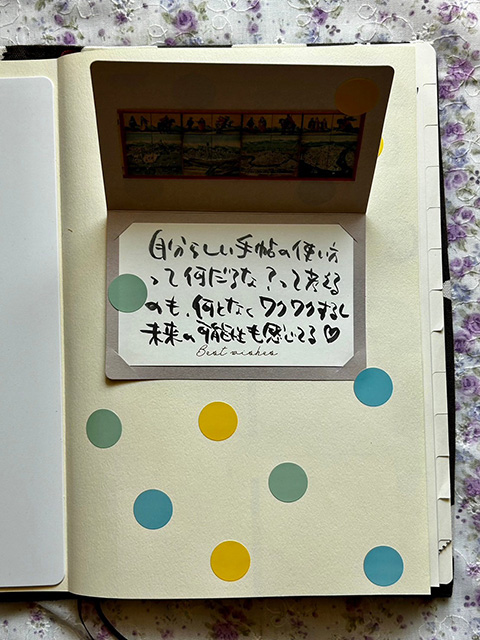 自分らしい手帖の使い方
って何だろな?って考える
のも、何となくワクワクするし
未来の可能性も感じてる♡
Best wishes